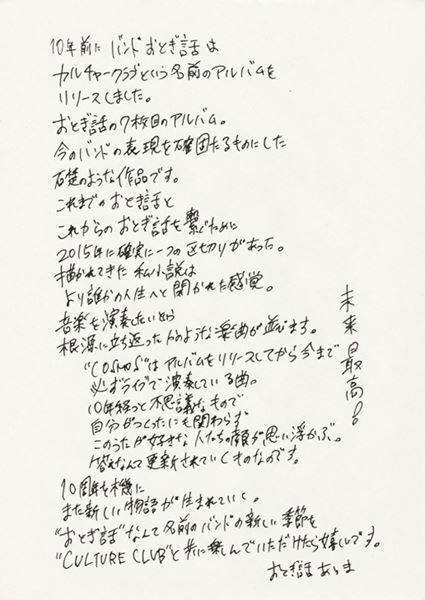 10年前に バンド おとぎ話 は
カルチャークラブという名前のアルバムを
リリースしました。
おとぎ話の7枚目のアルバム。
今のバンドの表現を確固たるものにした
礎のような作品です。
これまでのおとぎ話と
これからのおとぎ話を繋ぐために
2015年に確実に一つの区切りがあった。
描かれてきた私小説は
より誰かの人生へと開かれた感覚。
音楽を演奏したいから
根源に立ち返ったかのような楽曲が並びます。
"COSMOS"はアルバムをリリースしてから今まで
必ずライブで演奏している曲。
10年経つと不思議なもので
自分がつくったにも関わらず
このうたが好きな人たちの顔が思い浮かぶ。
答えなんて更新されていくものなのです。
10周年を機に
また新しい物語が生まれていく。
"おとぎ話"なんて名前のバンドの新しい季節を
"CULTURE CLUB"と共に楽しんでいただけたら嬉しいです。
おとぎ話 ありま
未来最高!